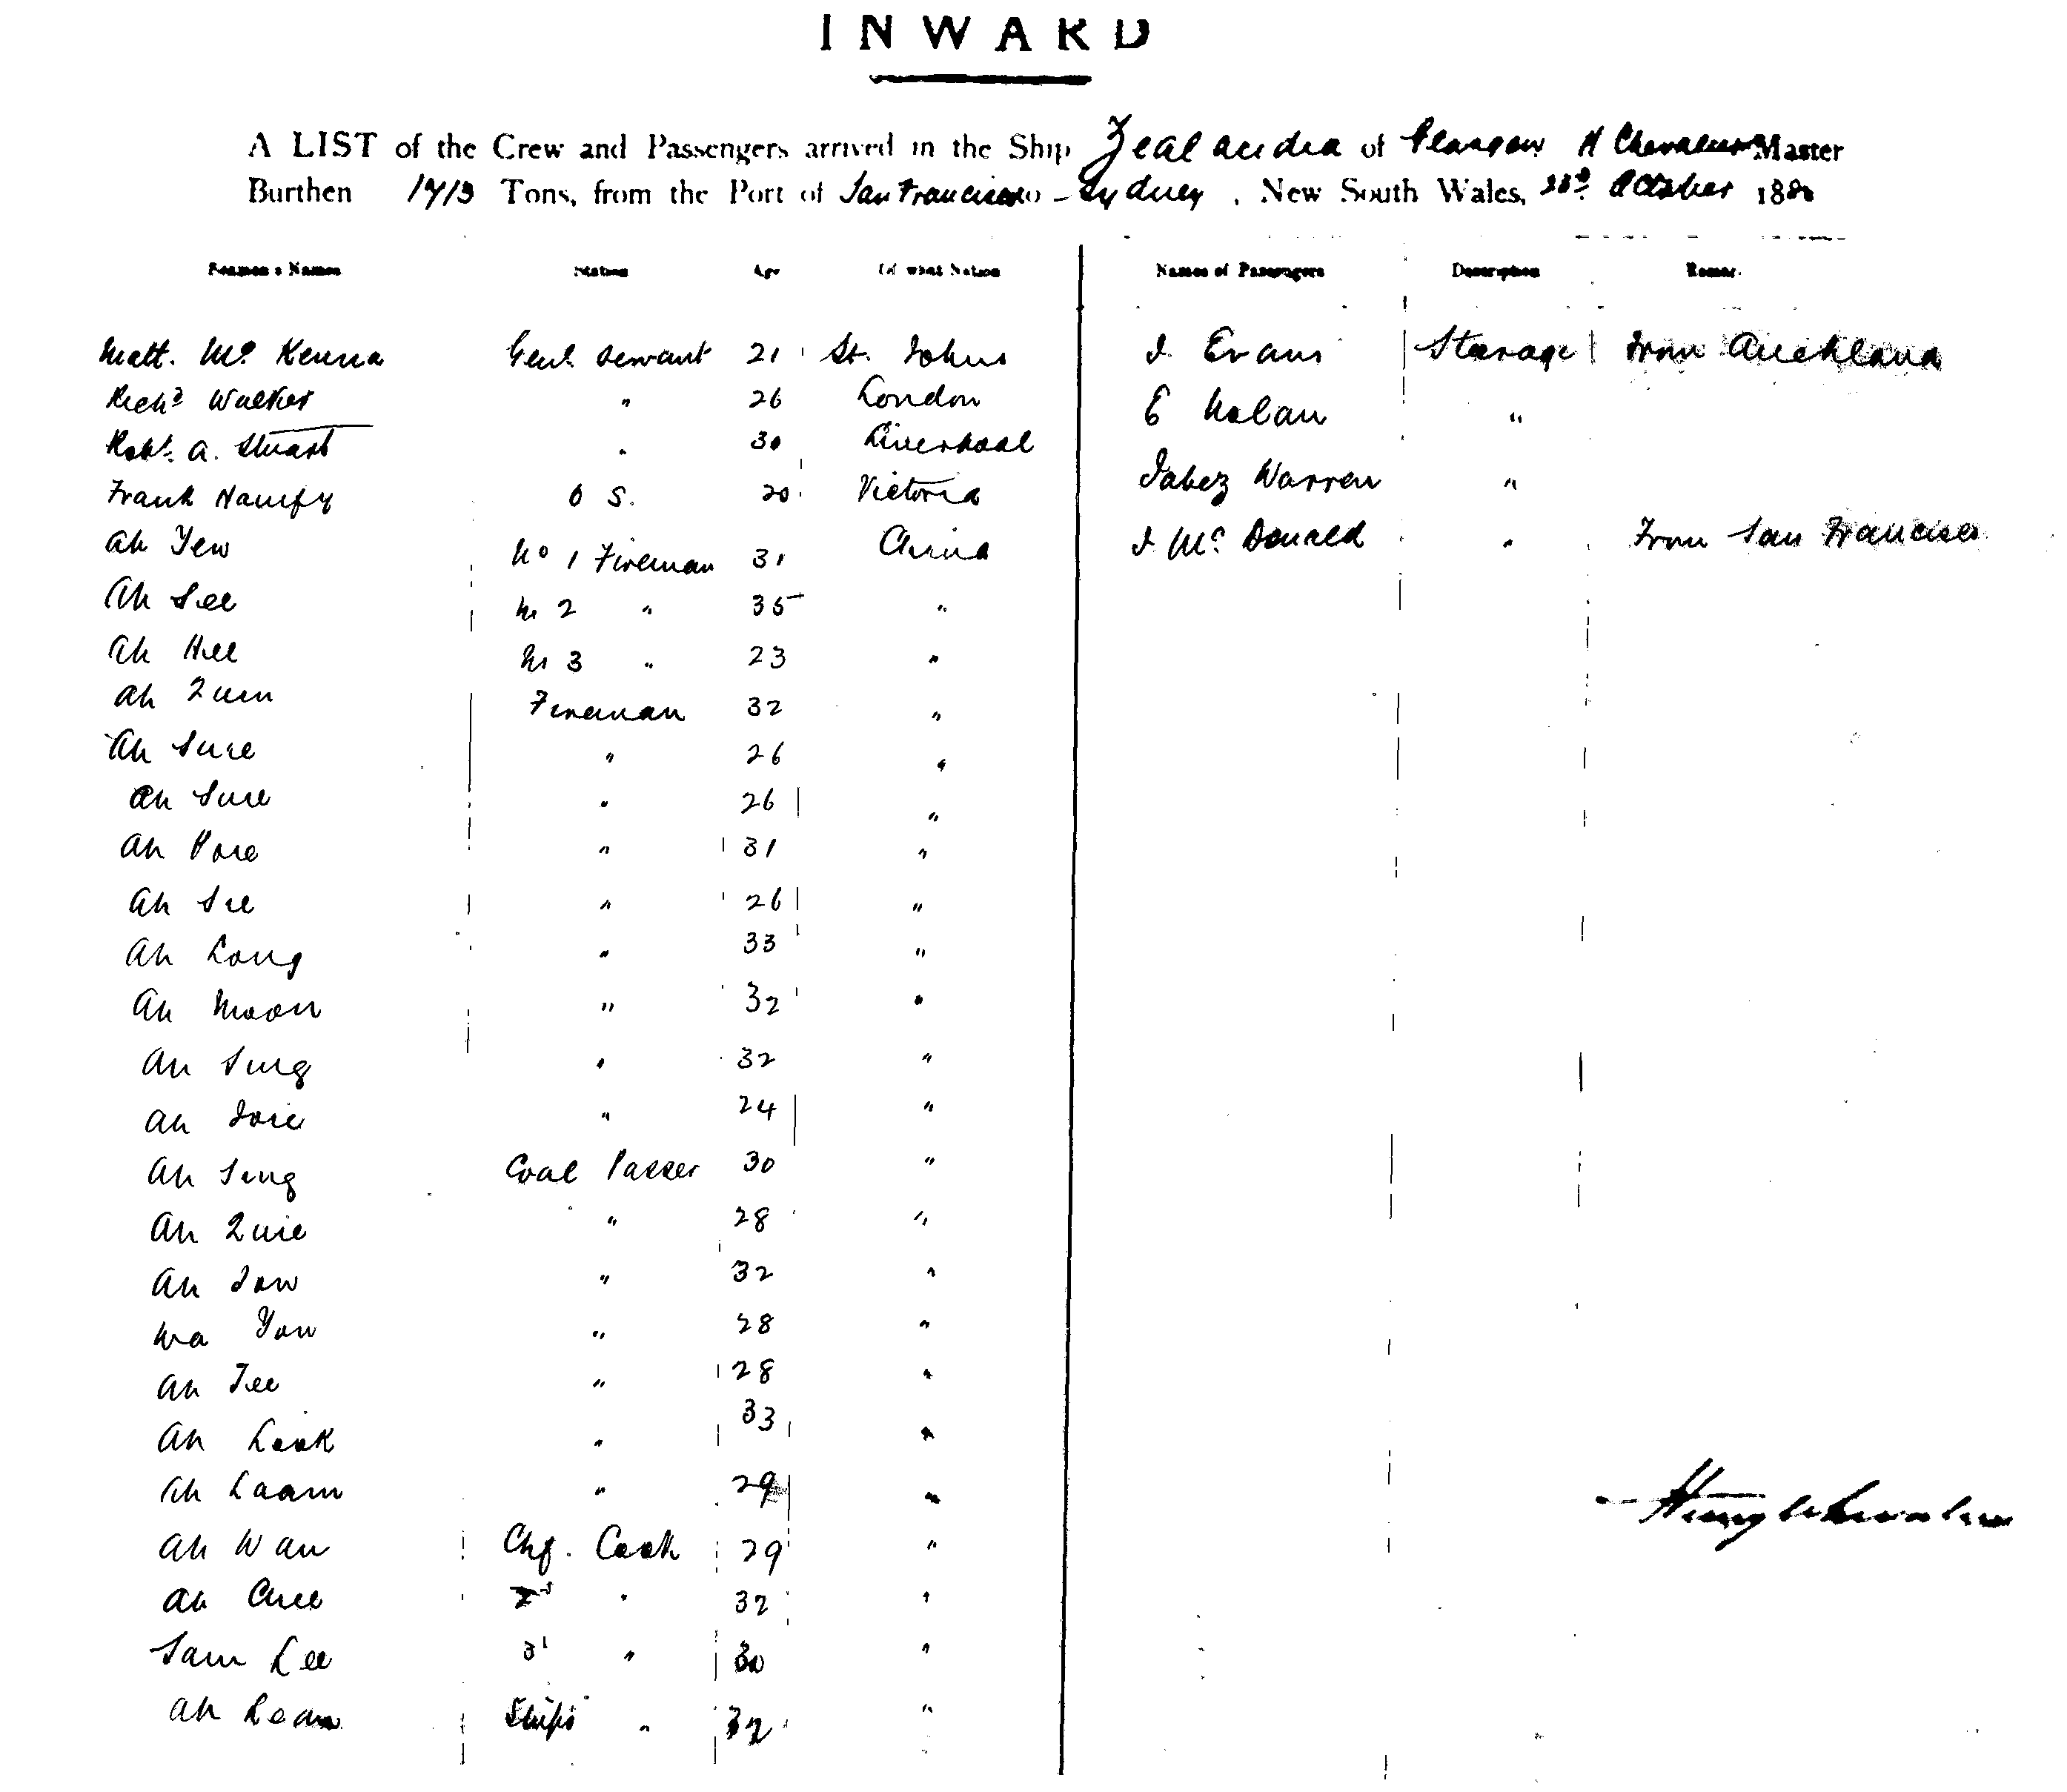 INWARD
A LIST of the Crew and Passengers arrived in the Ship Zealandia of Glasgow H Chevalier Master
Burthen Tons, from the Port of San Francisco to Sydney, New South Wales, October 188
Seamen's Names Station Age Of what Nation Names of Passengers Description Remar.
Matt. Mc Kenna Genl. Servant 21 St. Johns J Evans Steerage from Auckland
Richd Walker " 26 London E Nolan "
Robt. A. Stuart " 30 Liverpool Jabez Warren "
Frank O S. 20 Victoria
Ah Yew No 1 Fireman 31 China J Mc Donald " From San Francisco
Ah See No 2 " 35 "
Ah Hee No 3 " 23 "
Ah Fireman 32 "
Ah " 26 "
Ah " 26 "
Ah " 31 "
Ah See " 26 "
Ah Long " 33 "
Ah Moon " 32 "
Ah Sing " 32 "
Ah " 24 "
Ah Sing Coal Passer 30 "
Ah Quie " 28 "
Ah " 32 "
Wa You " 28 "
Ah " 28 "
Ah Look " 33 "
Ah Laam " 29 "
Ah Wan Chf. Cook 29 "
Ah Chee " 32 "
Sam Lee 3 " 30 "
Ah Ships " 32 "